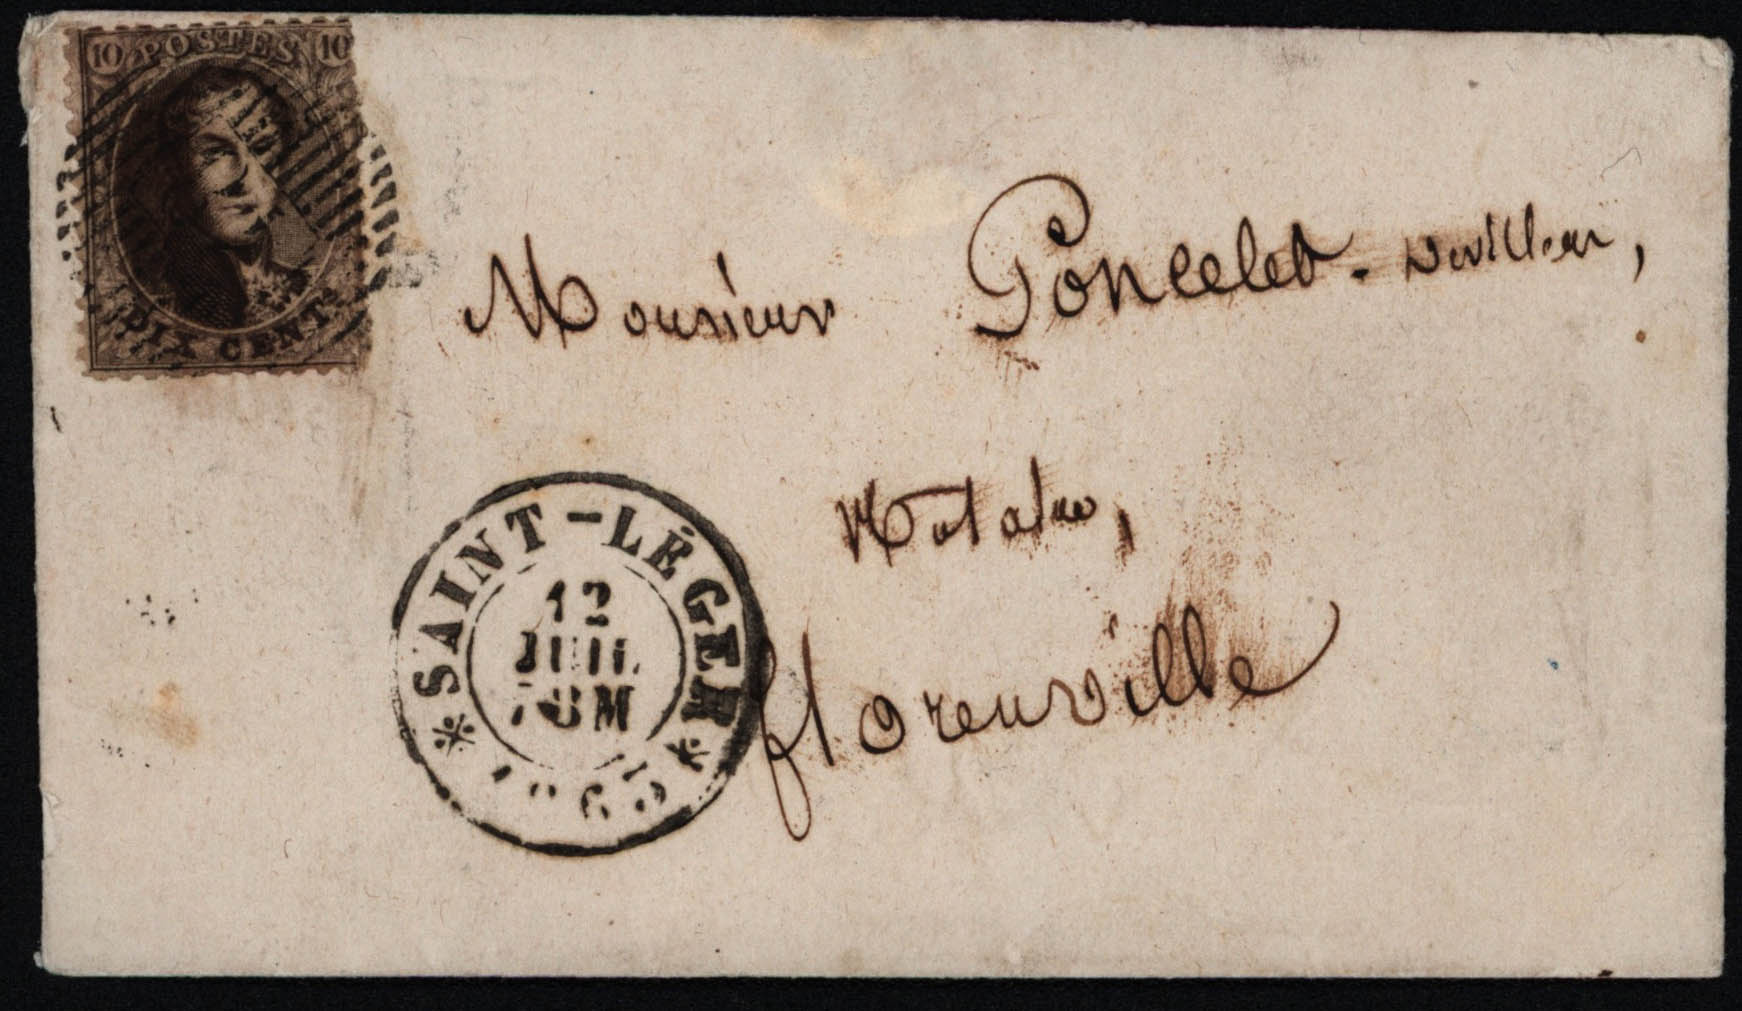 10 POSTES 10
DIX CENTS
Monsieur Poncelet-Devillez,
Notaire,
florenville
SAINT-LÉGER
12
JUIL